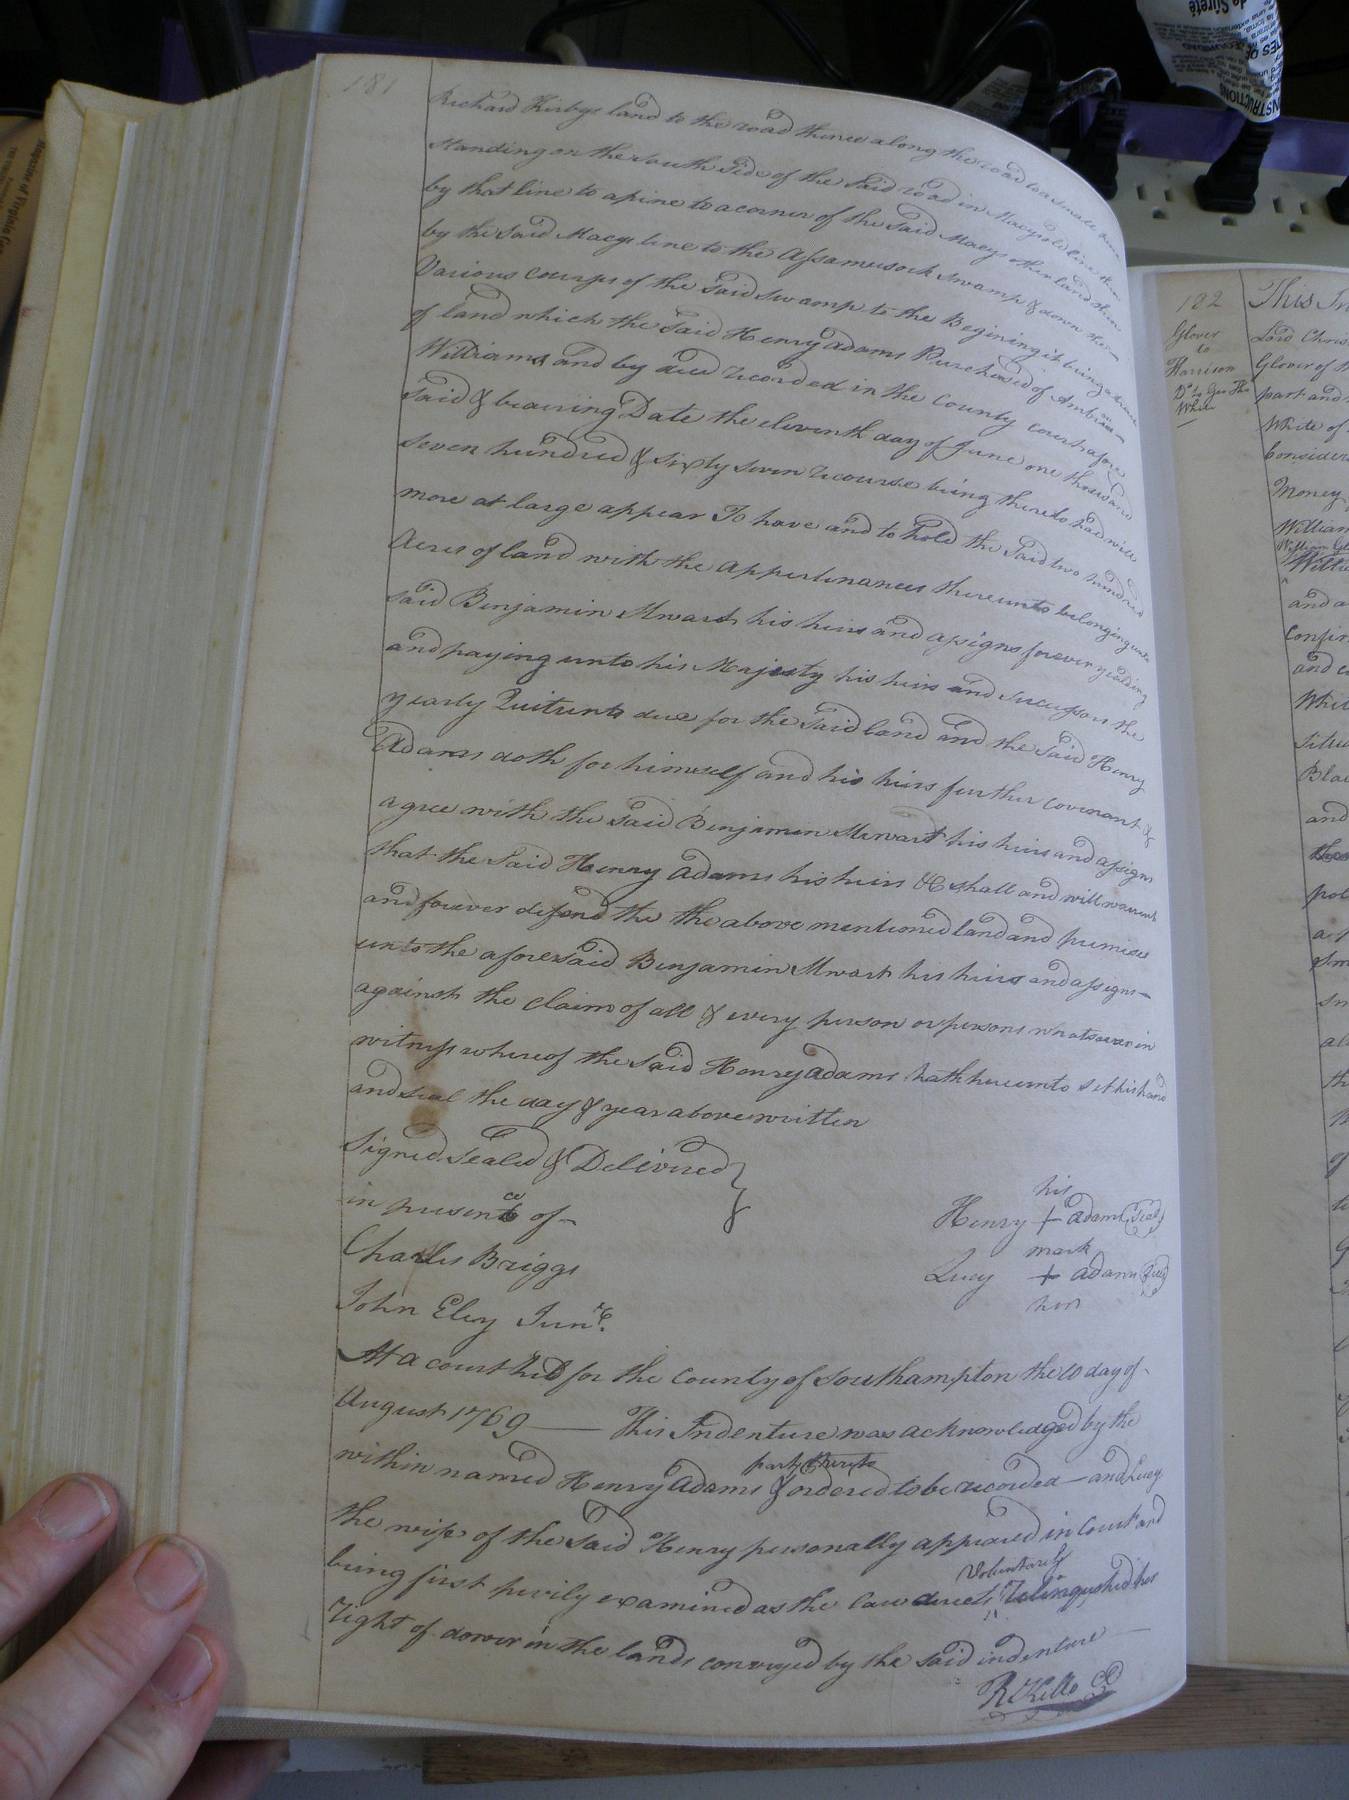 181
Richard Kirbys land to the road thence along the road to a small pine
Standing on the South Side of the Said road in Macys old line then
by that line to a pine to a corner of the Said Macys other land then
by the Said Macys line to the Assamusock Swamp & down the
Various courses of the Said Swamp to the Begining it being a tract
of land which the Said Henry Adams Purchased of
Williams and by deed recorded in the County court afore
Said & bearing Date the eleventh day of June one thousand
Seven hundred & Sixty Seven recourse being thereto had will
more at large appear To have and to hold the Said two hundred
Acres of land with the appertinances thereunto belonging unto
Said Benjamin Stewart his heirs and assigns forever yealding
and paying unto his Majesty his heirs and Successors the
yearly Quitrents due for the Said land and the Said Henry
Adams doth for himself and his heirs further covenant &
agree with the Said Benjamin Stewart his heirs and assigns
that the Said Henry Adams his heirs &C shall and will warrent
and forever defend the the above mentioned land and premises
unto the aforesaid Benjamin Stewart his heirs and assigns
against the claim of all & every person or persons whatsoever in
witness whereof the Said Henry Adams hath hereunto Set his hand
and Seal the day & year above written
Signed Sealed & Delivered
in presence of
his
Henry + Adams Seal
mark
Charles Briggs
Lucy + Adams Seal
her
John Eley Junr.
At a court held for the County of Southampton the 10 day of
August 1769 — This Indenture was acknowledged by the
party thereto
within named Henry Adams & ordered to be recorded — and Lucy
the wife of the Said Henry personally appeared in Court and
Voluntarily
being first privily examined as the law directs relinquished her
right of dower in the lands conveyed by the Said indenture
R Kello CC
182
Glover
to
Harrison
Ds to Geo Tho
White
This In
Lord Chris
Glover of
part and
White of
Consider
Money
William
William Gl
and a
Confir
and
Whit
Situa
Blac
and